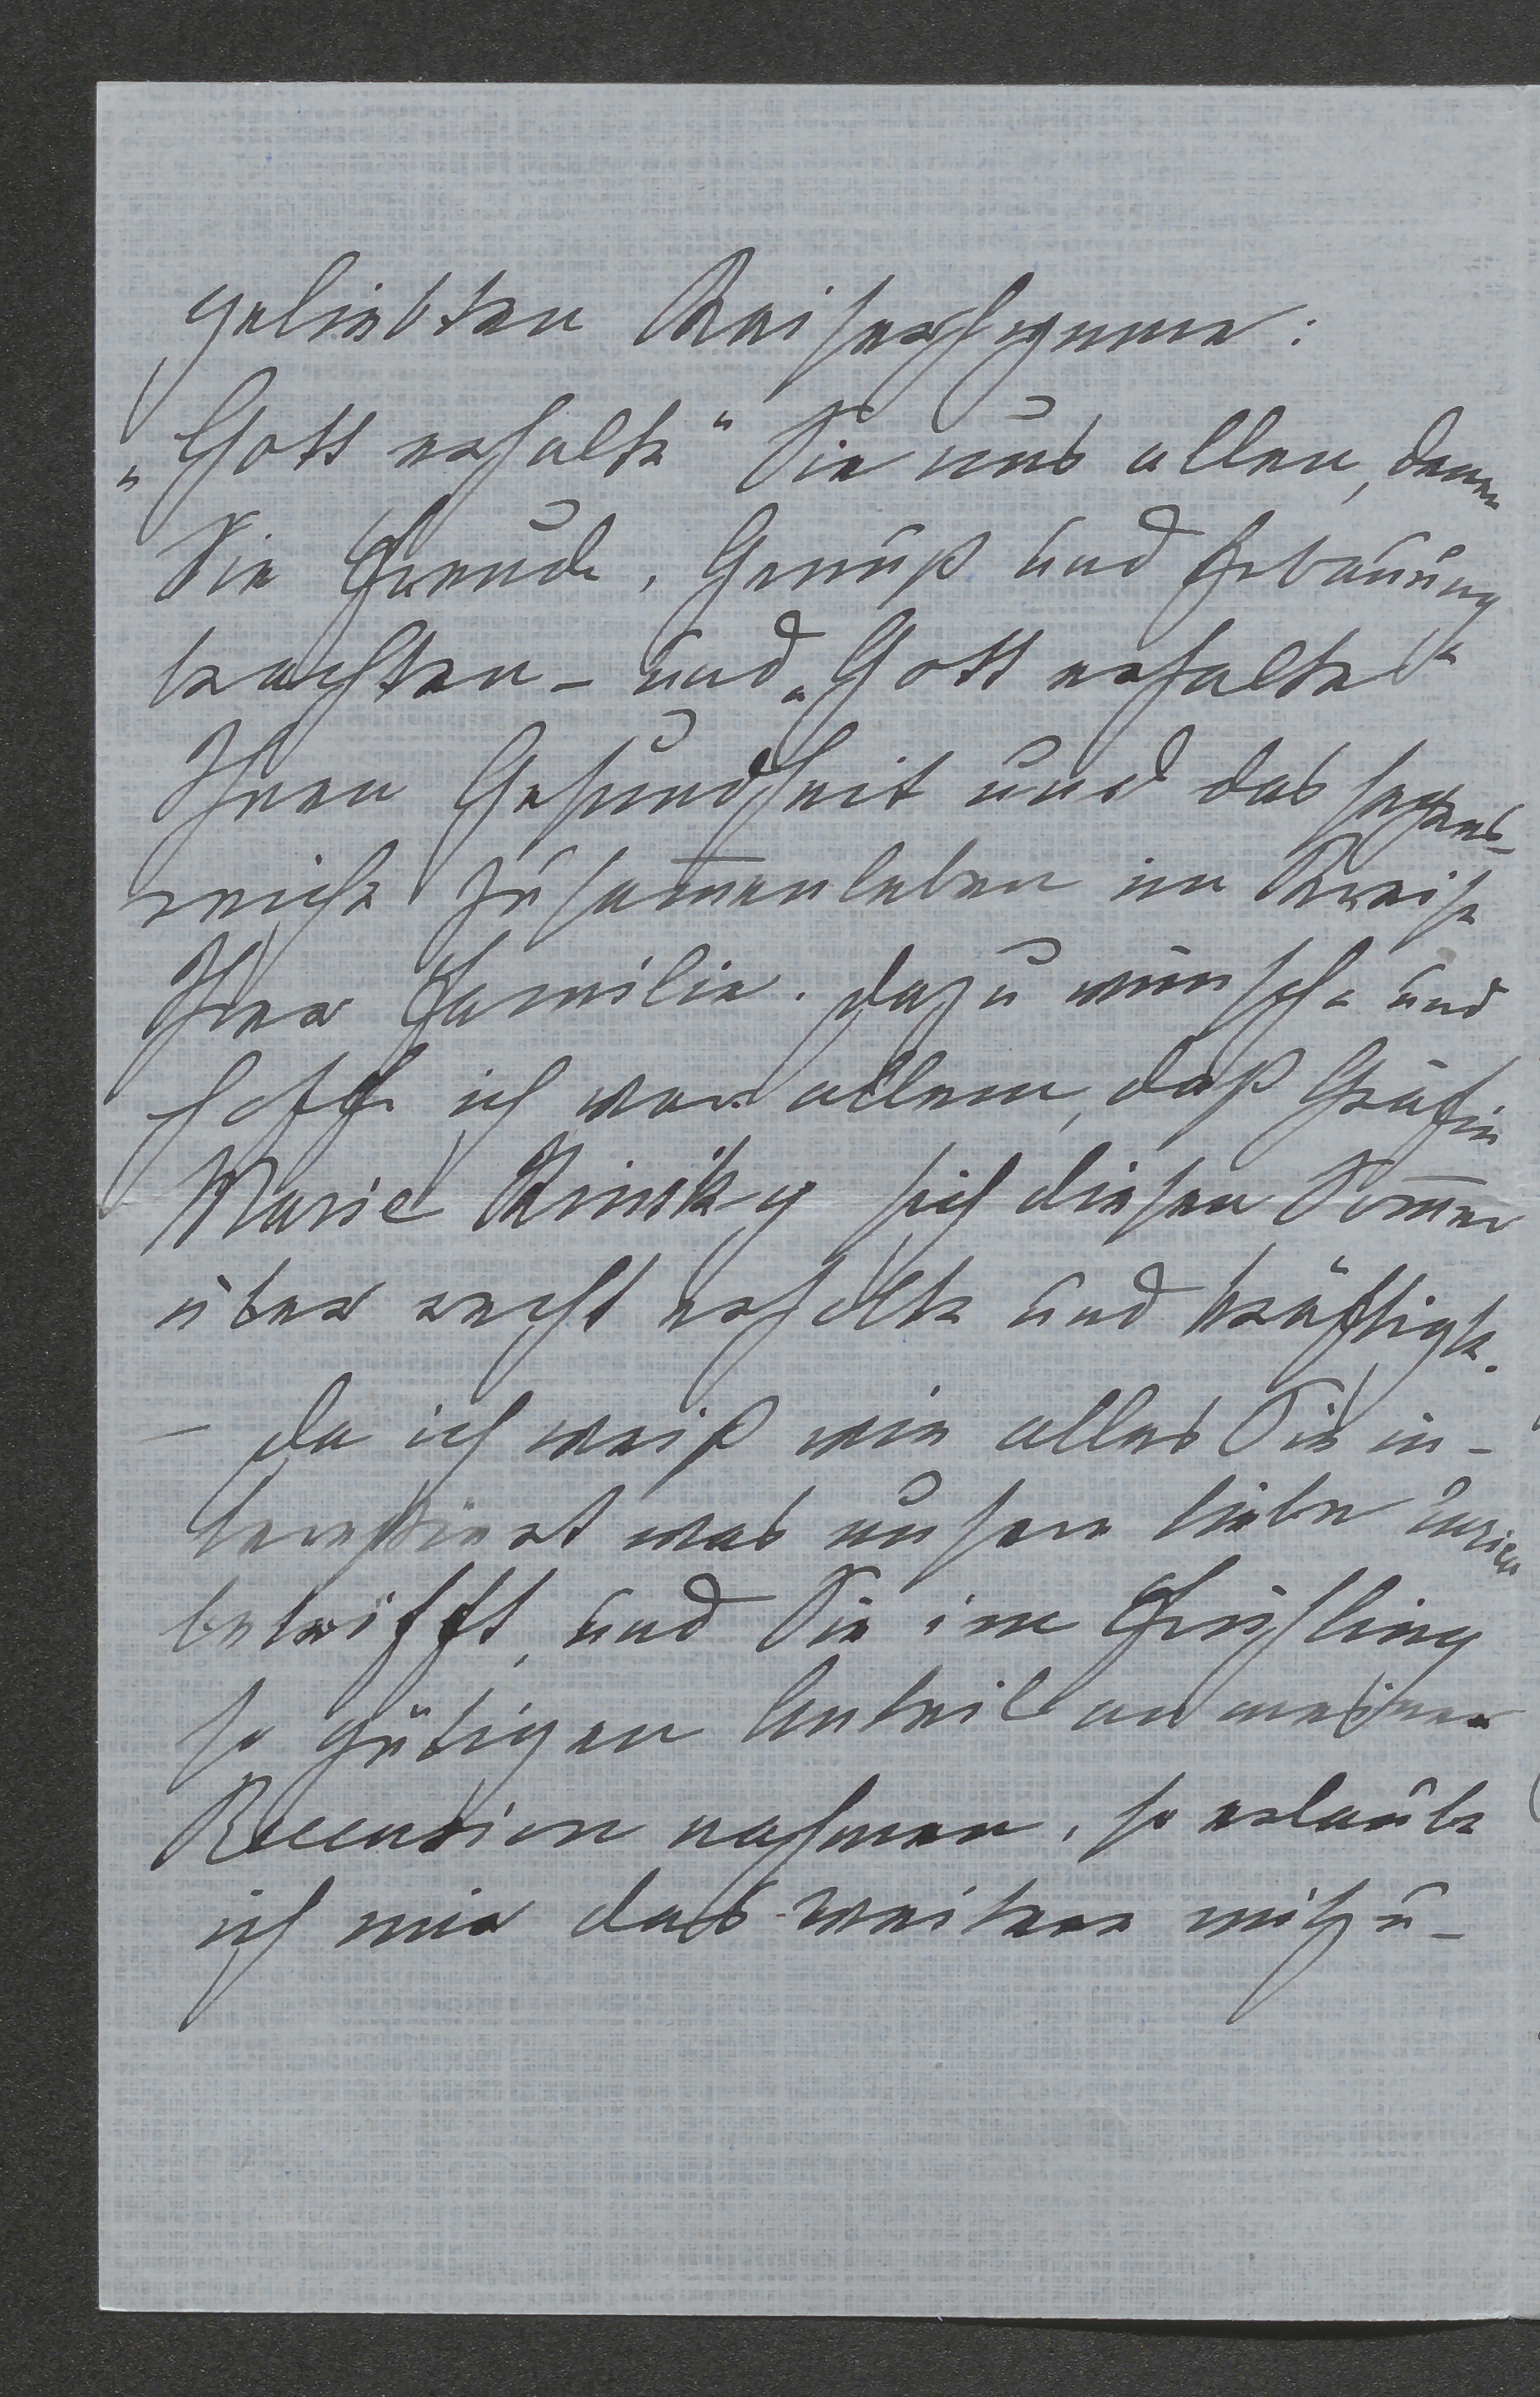 geliebten Kaiserhymne:
„Gott erhalte“ Sie uns allen, denen
Sie Freude, Genuß und Erbauung
brachten – und „Gott erhalte“
Ihren Gesundheit und das segens-
reiche Zusam̅enleben im Kreise
Ihrer Familie. Dazu wünsche und
hoffe ich vor allem, daß Gräfin
Marie Kinsky sich diesen Som̅er
über recht erholte und kräftigte.
– Da ich weiß wie alles Sie in-
teressiert was unsere liebe
betrifft, und Sie im Frühling
so gütigen Anteil an meiner
Recension nahmen, so erlaube
ich mir das weitere mitzu-